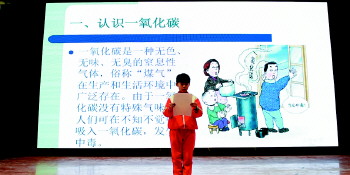 一、认识一氧化碳
一氧化碳是一种无色、
无味、无臭的窒息性
气体，俗称“煤气”
在生产和生活环境中
广泛存在。由于一
化碳没有特殊气味
人们可在不知不觉
吸入一氧化碳，发
中毒。